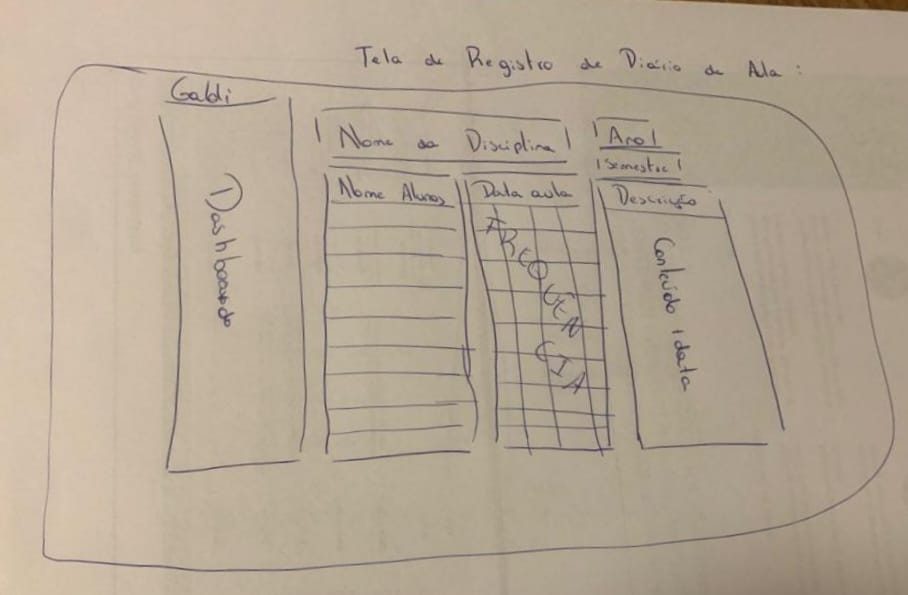 Tela de Registro de Diário de Aula :
Galdi
Dashboardo
Nome da Disciplina
Ano
Semestre
Nome Alunos
Data aula
Descrição
FREQUÊNCIA
Conteúdo / data